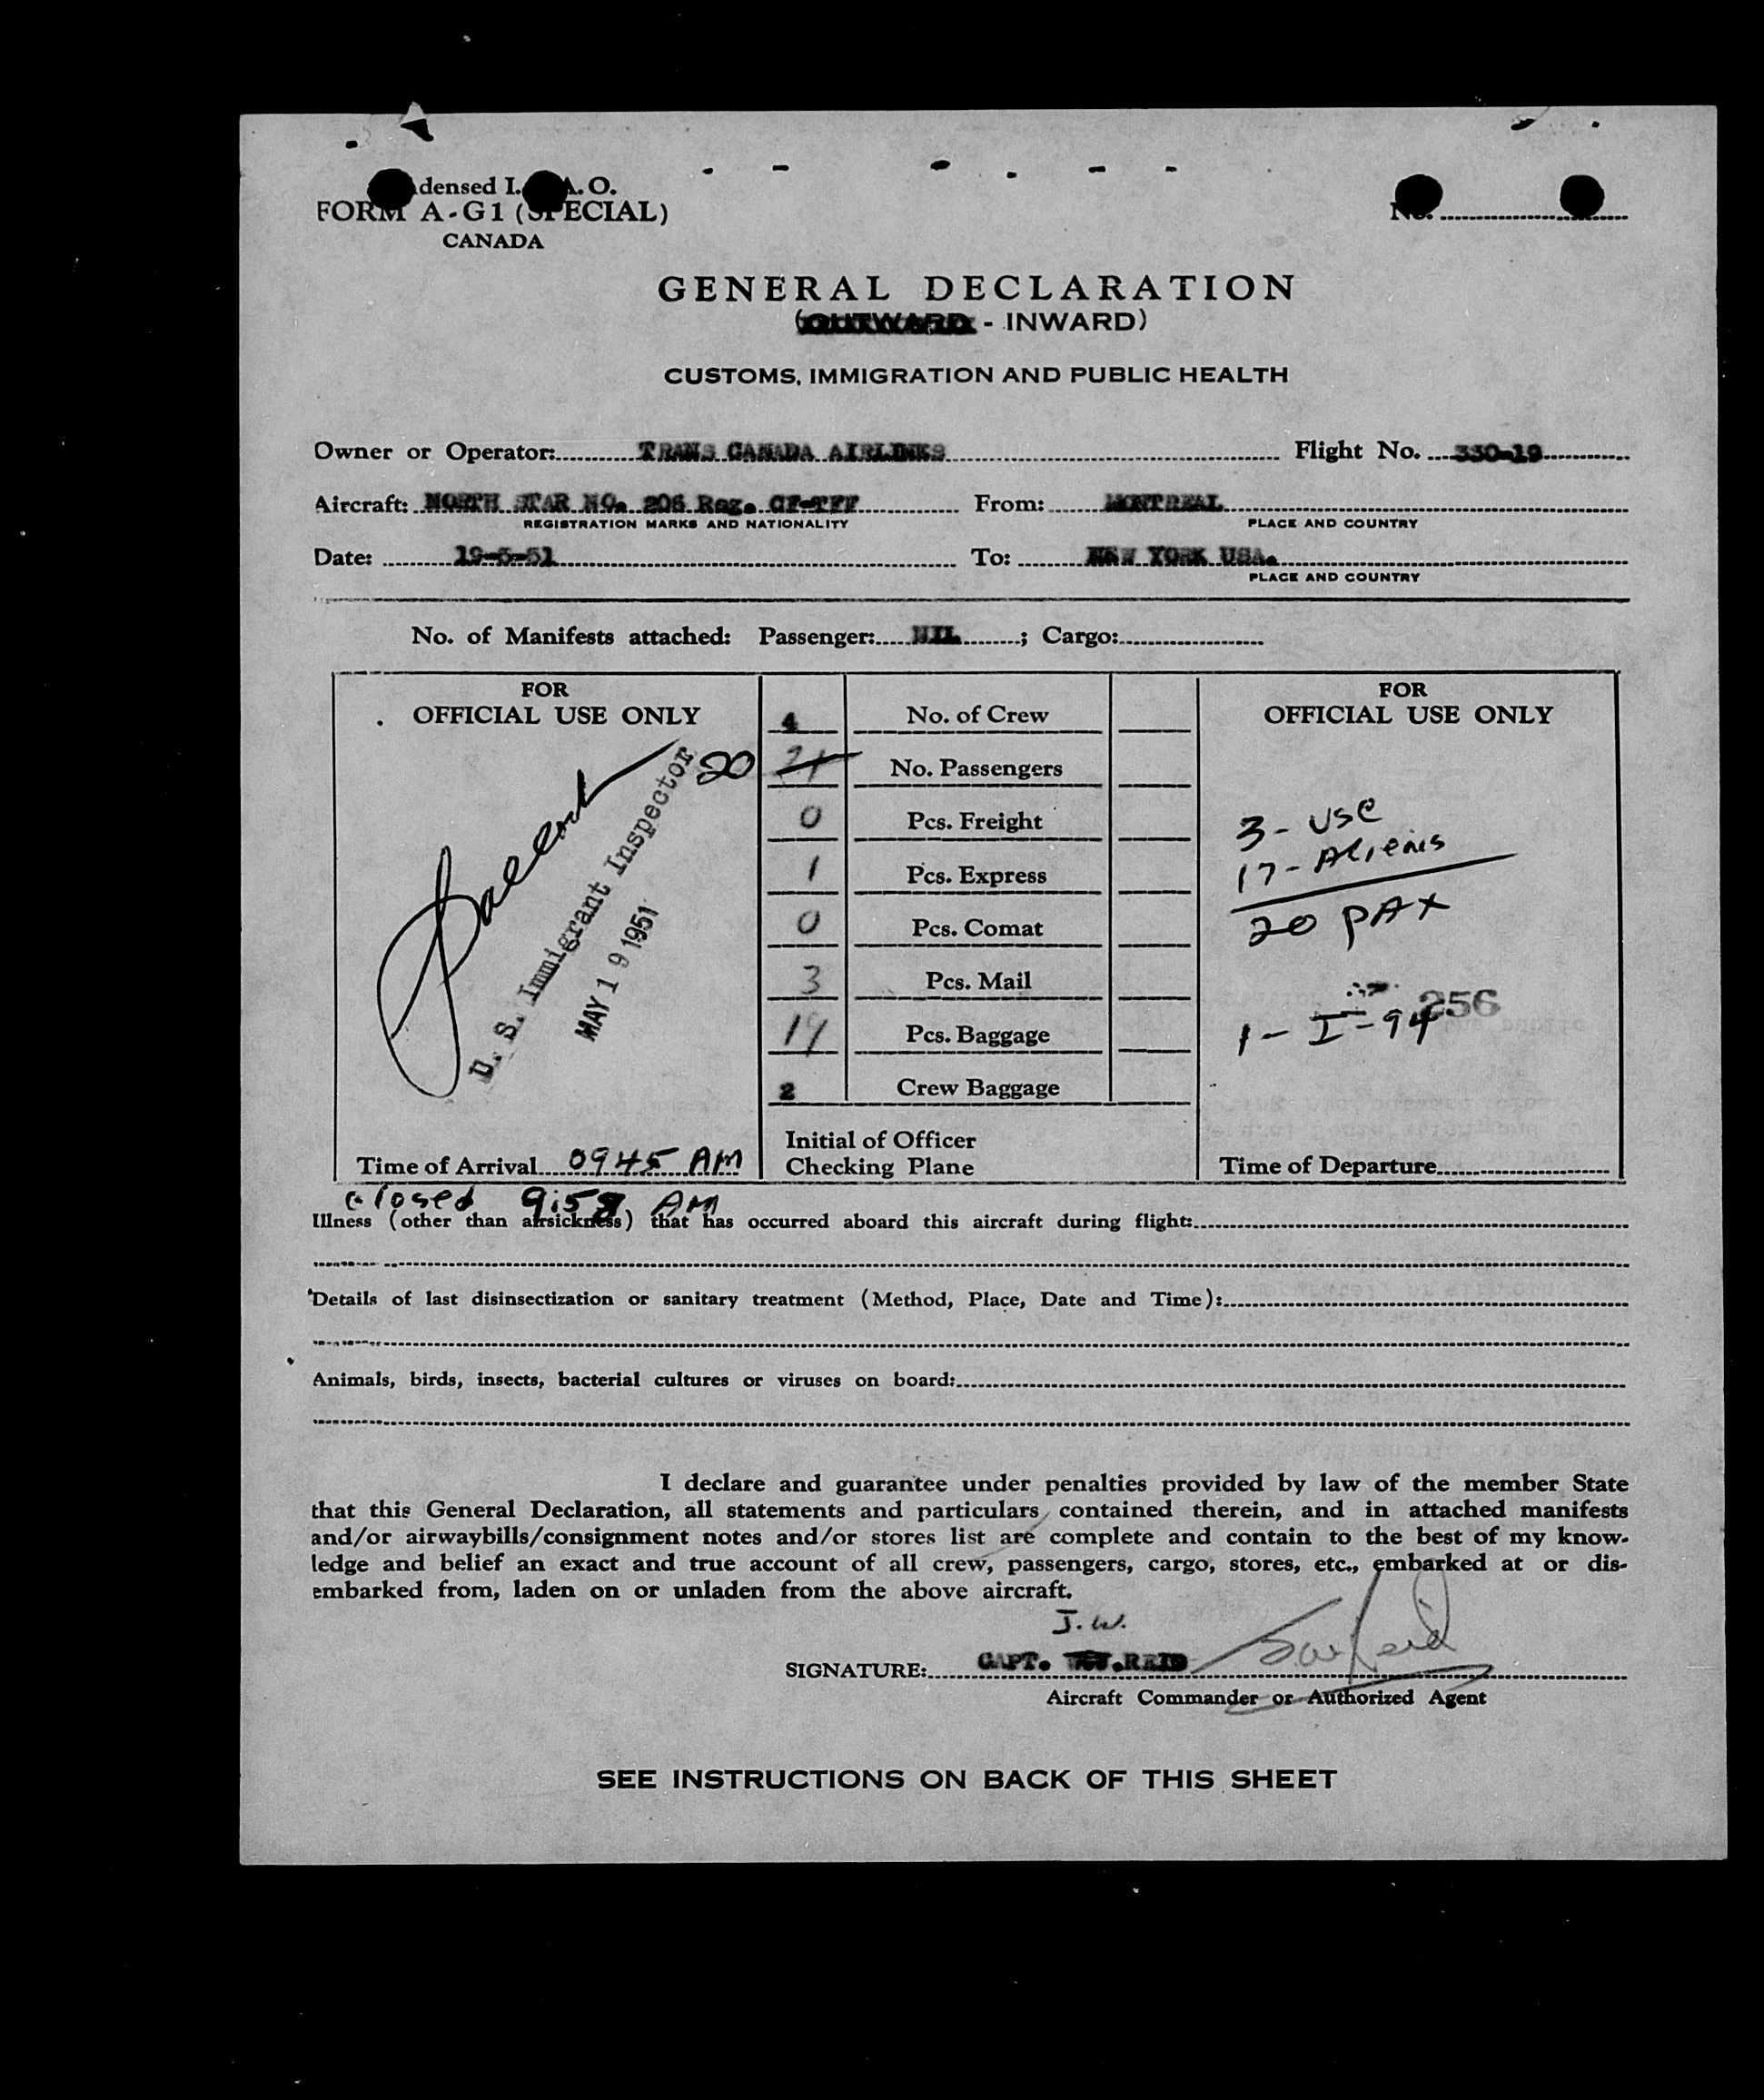 densed I. A.O.
FORM A-G1 (SPECIAL)
CANADA
No.
GENERAL DECLARATION
(OUTWARD - INWARD)
CUSTOMS, IMMIGRATION AND PUBLIC HEALTH
Owner or Operator: TRANS CANADA AIRLINES Flight No. 330-19
Aircraft: NORTH STAR NO. 206 Reg. CF-TFF From: MONTREAL
REGISTRATION MARKS AND NATIONALITY PLACE AND COUNTRY
Date: 19-5-51 To: NEW YORK USA.
PLACE AND COUNTRY
No. of Manifests attached: Passenger: NIL; Cargo:
FOR
OFFICIAL USE ONLY
U. S. Immigrant Inspector
MAY 19 1951
Time of Arrival 0945 AM
closed 9:58 AM
4 No. of Crew
20 21 No. Passengers
0 Pcs. Freight
1 Pcs. Express
0 Pcs. Comat
3 Pcs. Mail
19 Pcs. Baggage
2 Crew Baggage
Initial of Officer
Checking Plane
FOR
OFFICIAL USE ONLY
3 - USC
17 - Aliens
20 PAX
256
1 - I-94
Time of Departure
Illness (other than airsickness) that has occurred aboard this aircraft during flight:
Details of last disinsectization or sanitary treatment (Method, Place, Date and Time):
Animals, birds, insects, bacterial cultures or viruses on board:
I declare and guarantee under penalties provided by law of the member State
that this General Declaration, all statements and particulars contained therein, and in attached manifests
and/or airwaybills/consignment notes and/or stores list are complete and contain to the best of my know-
ledge and belief an exact and true account of all crew, passengers, cargo, stores, etc., embarked at or dis-
embarked from, laden on or unladen from the above aircraft.
J.W.
SIGNATURE: CAPT. REID JW Reid
Aircraft Commander or Authorized Agent
SEE INSTRUCTIONS ON BACK OF THIS SHEET